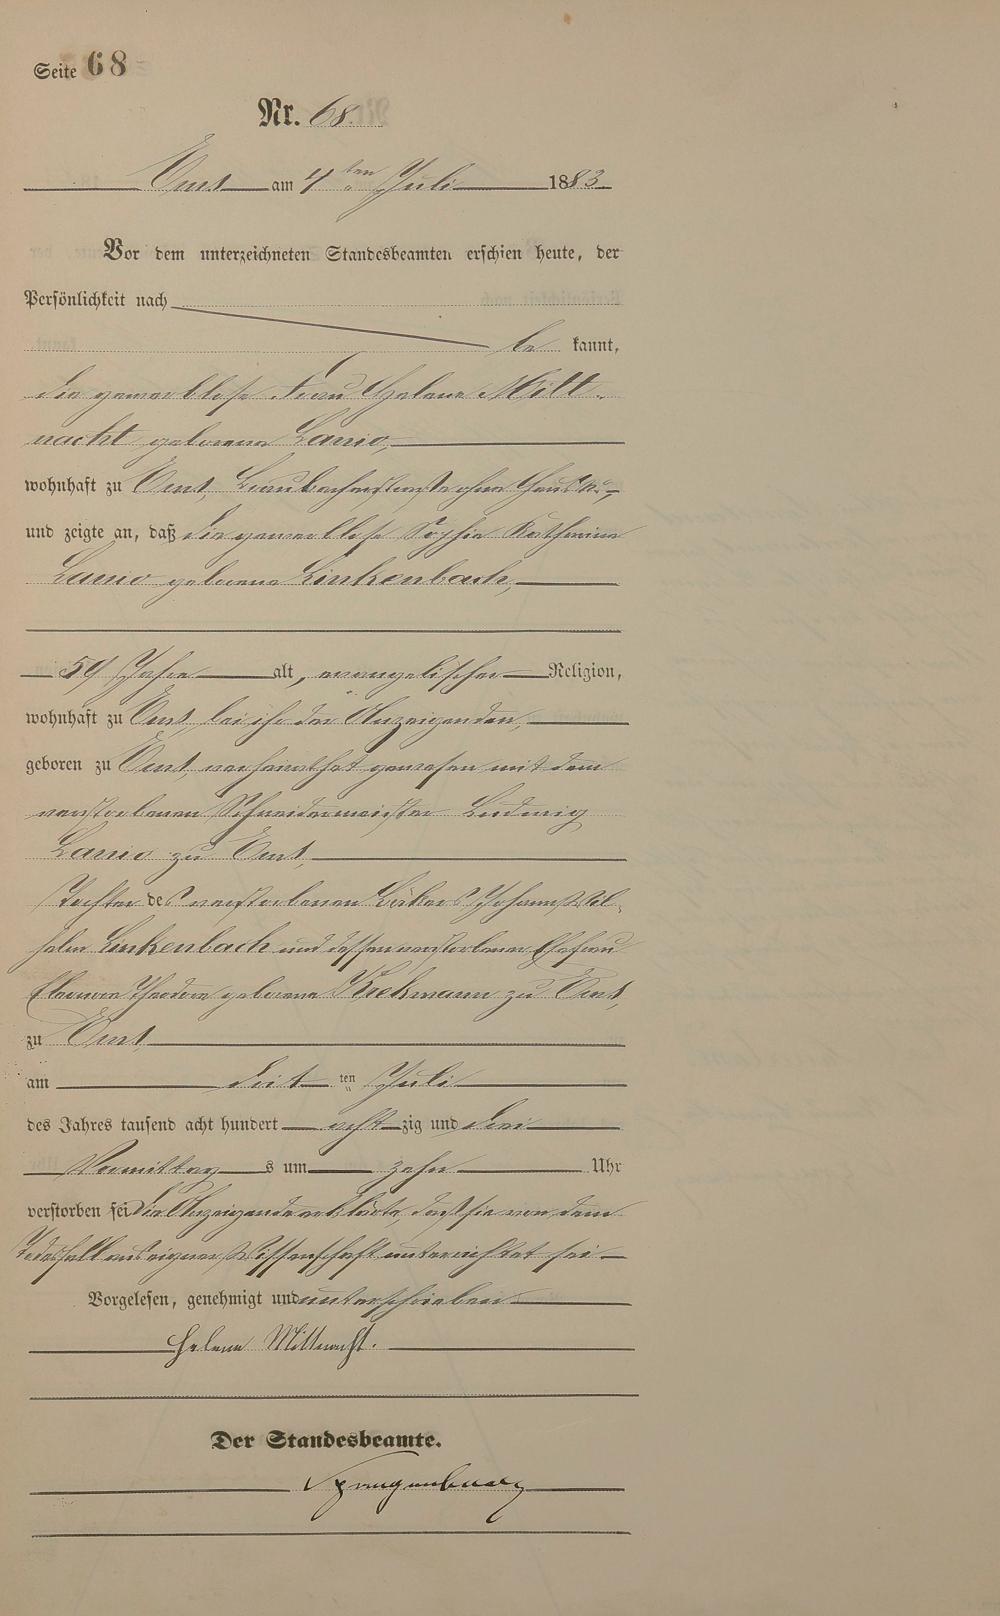 Seite 68
Nr. 68.
Ems am 4ten Juli 1883
Vor dem unterzeichneten Standesbeamten erschien heute, der
Persönlichkeit nach
be kannt,
die gewerblose Frau Helene Mitt-
nacht geborene Lanio,
wohnhaft zu Ems, ohne Haus No
und zeigte an, daß die gewerblose Sophie Katharina
Lanio geborene Linkenbach,
59 Jahre alt, evangelischer Religion,
wohnhaft zu Ems, bei ihr der Anzeigenden,
geboren zu Ems, verheirathet gewesen mit dem
verstorbenen Schneidermeister Ludwig
Lanio zu Ems,
Tochter des verstorbenen Johann Wil-
helm Linkenbach und dessen verstorbener Ehefrau
Theodore geborene zu Ems,
zu Ems,
am ten Juli
des Jahres tausend acht hundert acht zig und drei
Vormittags um zehn Uhr
verstorben sei Die Anzeigende erklärte, daß sie von dem
Todesfall aus eigener Wissenschaft unterrichtet sei
Vorgelesen, genehmigt und unterschrieben
Helene Mittnacht.
Der Standesbeamte.
Spangenberg